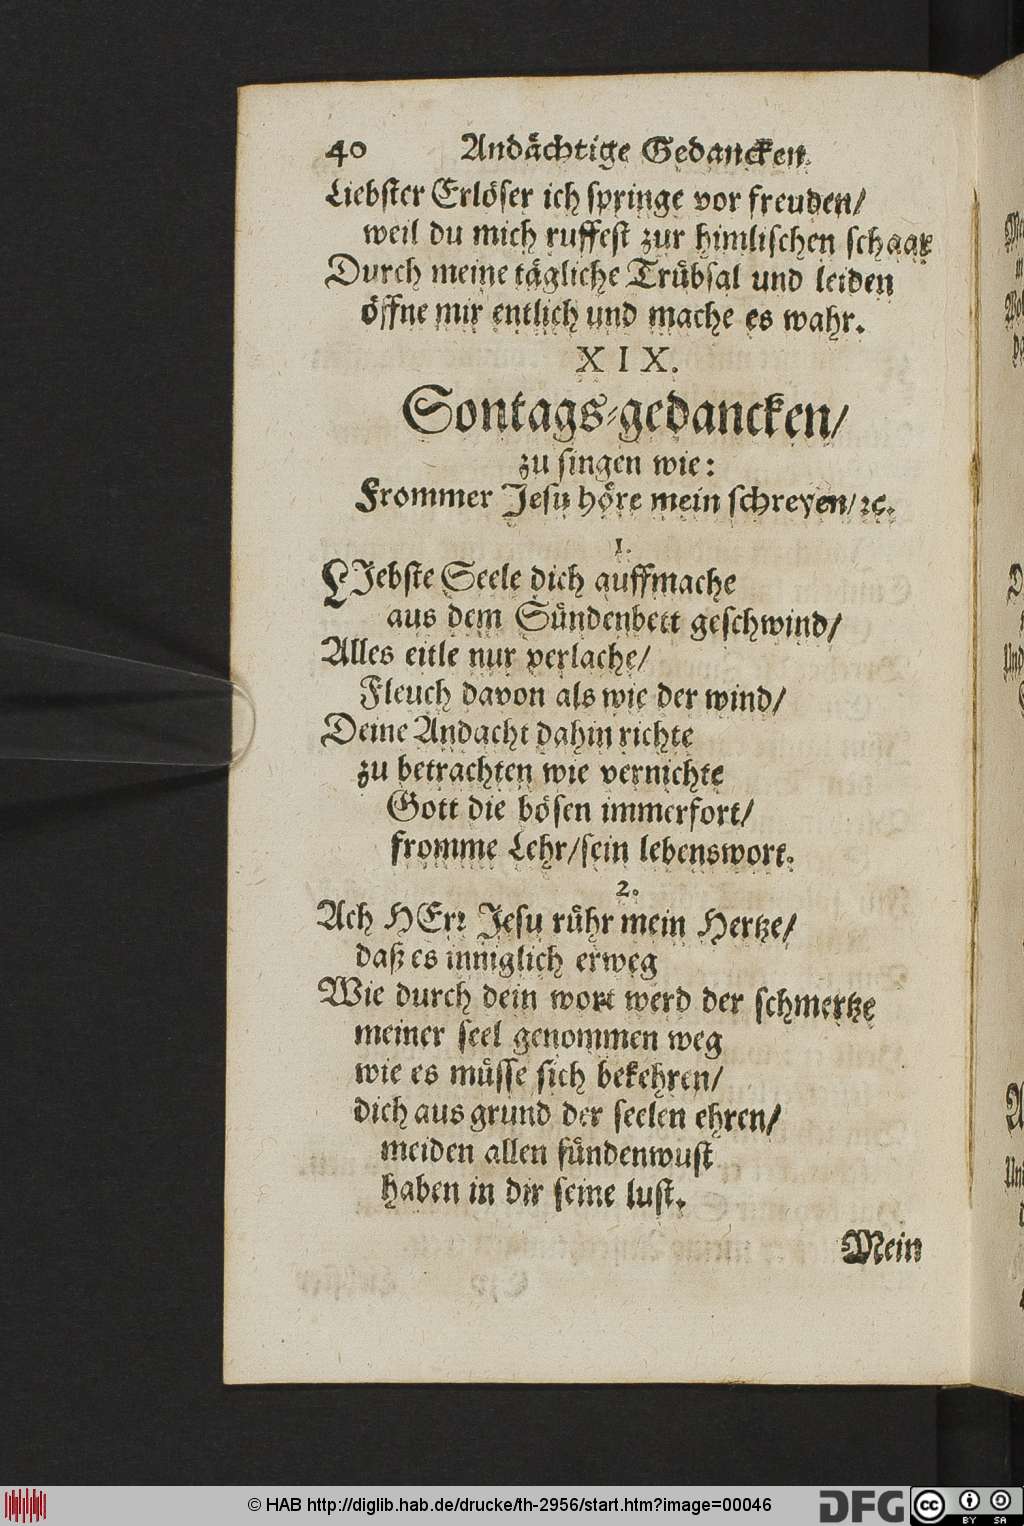 40 Andächtige Gedancken.
Liebster Erlöser ich springe vor freuden/
weil du mich ruffest zur himlischen schaar
Durch meine tägliche Trübsal und leiden
öffne mir entlich und mache es wahr.
XIX.
Sontags-gedancken/
zu singen wie:
Frommer Jesu höre mein schreyen/ ꝛc.
1.
LJebste Seele dich auffmache
aus dem Sündenbett geschwind/
Alles eitle nur verlache/
Fleuch davon als wie der wind/
Deine Andacht dahin richte
zu betrachten wie vernichte
Gott die bösen immerfort/
fromme Lehr/sein lebenswort.
2.
Ach HErr Jesu rühr mein Hertze/
daß es inniglich erweg
Wie durch dein wort werd der schmertze
meiner seel genommen weg
wie es müsse sich bekehren/
dich aus grund der seelen ehren/
meiden allen sündenwust
haben in dir seine lust.
Mein
© HAB http://diglib.hab.de/drucke/th-2956/start.htm?image=00046
DFG
cc BY SA